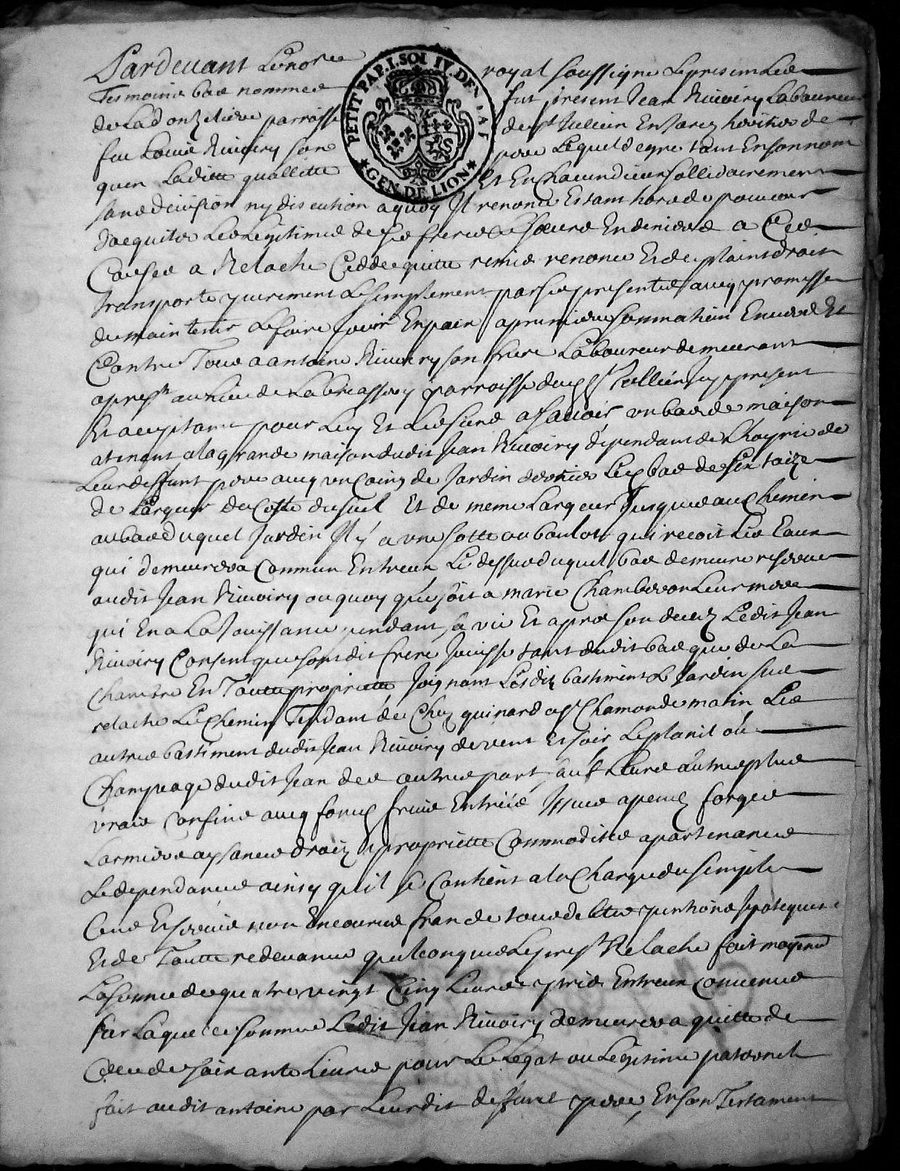 Pardevant Le no.re royal soussigne Le presen Led
Tesmoins bas nommes fut present Jean Rivoiry Laboureur
de La donzeliere parroisse de St Jullien En Jarez heritier de
feu Louis Rivoiry son pere Lequel de gre tant En son nom
qu'en Laditte quallitte Et En chacun dieux sollidairement
sans division ny discution a quoy Jl renonce Estant hors de pouvoir
PETIT PAP. I. SOL IV. DEN. LA F. GEN. DE LION
d'aequiter Les Legitimes de ses freres Le soeurs En deniers a Ces
Causes a Relache Cedde quitte remis renonce Et de plain droit
transporte purement Le simplement par ses presentes avec promesse
de maintenir Le faire Jouir En paix a premiere sommation Envers Et
Contre Tous a antoine Rivoiry son frere Laboureur demeurant
apres.t au Lieu de La breassery parroisse dud St Jullien Jcy present
Et aceptant pour Luy Et Les siens a sauoir un bas de maison
atenant a La grande maison dudit Jean Rivoiry dependant de L'hoyrie de
Leur deffunt pere avec un Coing de Jardin derrier Led bas de six toize
de Largeur du Cotte du seuil Et de meme Largeur Jusques au Chemin
au bas duquel Jardin Jl y a une sotte ou boutasse qui recoit Les Eaux
qui demeurera Commun Entreux Le dessus duquel bas demeure reserve
audit Jean Rivoiry ou quoy que soit a marie Chamberon Leur mere
qui En a La Jouissance pendant sa vie Et apres son decez Ledit Jean
Rivoiry Consent que sondit frere Jouisse tant dudit bas que de La
chambre En Toutte proprietté Joignant Lesdits bastiment Le Jardin sus
relache Le Chemin Tendant de Chez guinard a St Chamond de matin Les
autres bastiment dudit Jean Rivoiry de vent Et soir Le planil ou
Champeage dudit Jean des autres part, sauf Leurs autres plus
vrais Confins avec fonds fruits Entrées Jssues apends forges
Larmiers aysances droits Et proprietté Commodittes apartenances
Le dependances ainsy qu'il se Contient a La Charge du simple
Cens Et servis non Encourus franc de tous debtes pentions Jpoteques
Et de Toutte redevance quelconque Le pres.t Relache fait moyenn.t
La somme de quatre vingt Cinq Livres prix Entreux Convenu
sur Laquelle somme Ledit Jean Rivoiry demeurera quitte de
Celle de soixante Livres pour Le Legat ou Legitime paternel
fait audit antoine par Leurdit deffunt pere En son Testament